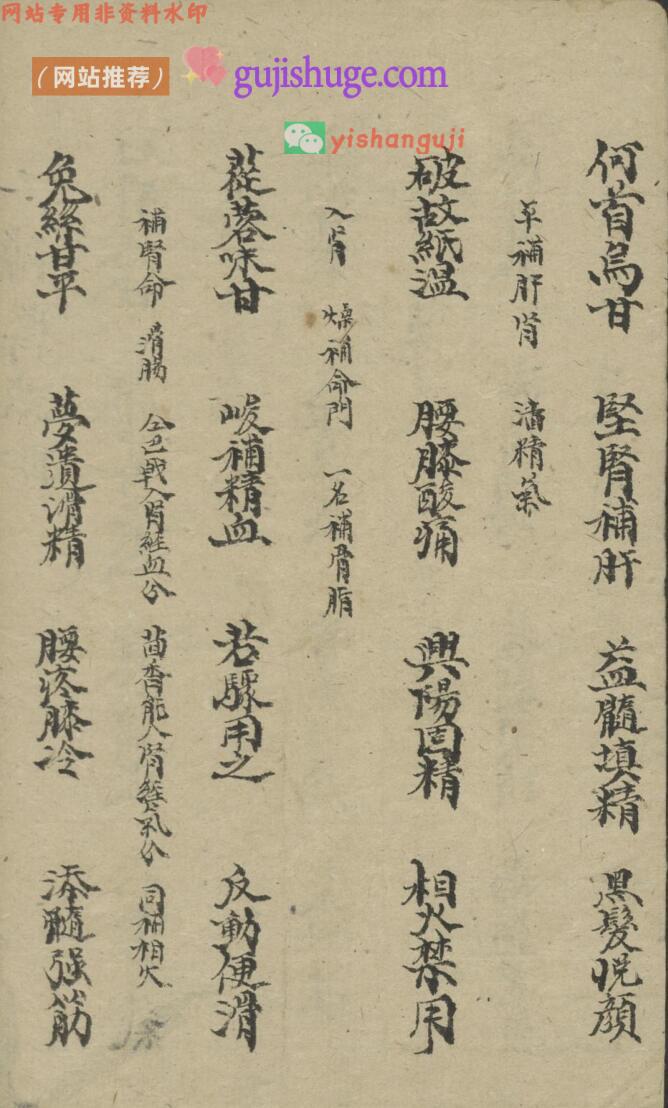 网站专用非资料水印
（网站推荐）
gujishuge.com
yishanguji
何首烏甘 堅腎補肝 益髓填精 黑髮悦顔
平補肝腎 濇精氣
破故紙温 腰膝酸痛 興陽固精 相火禁用
入腎 燥補命門 一名補骨脂
蓯蓉味甘 峻補精血 若驟用之 反動便滑
補腎命 滑腸 仝巴戟入腎經血分 茴香能入腎經氣分 同補相火
兔絲甘平 夢遺滑精 腰疼膝冷 添髓强筋